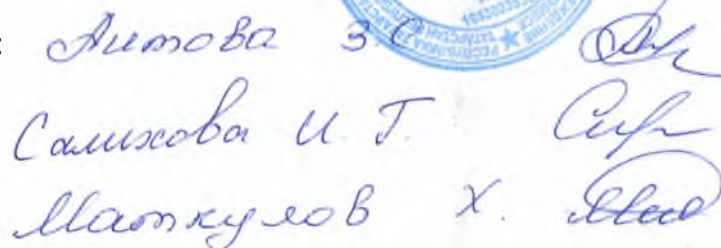 : Аитова З.С
Салихова И.Г.
Маткулов Х.